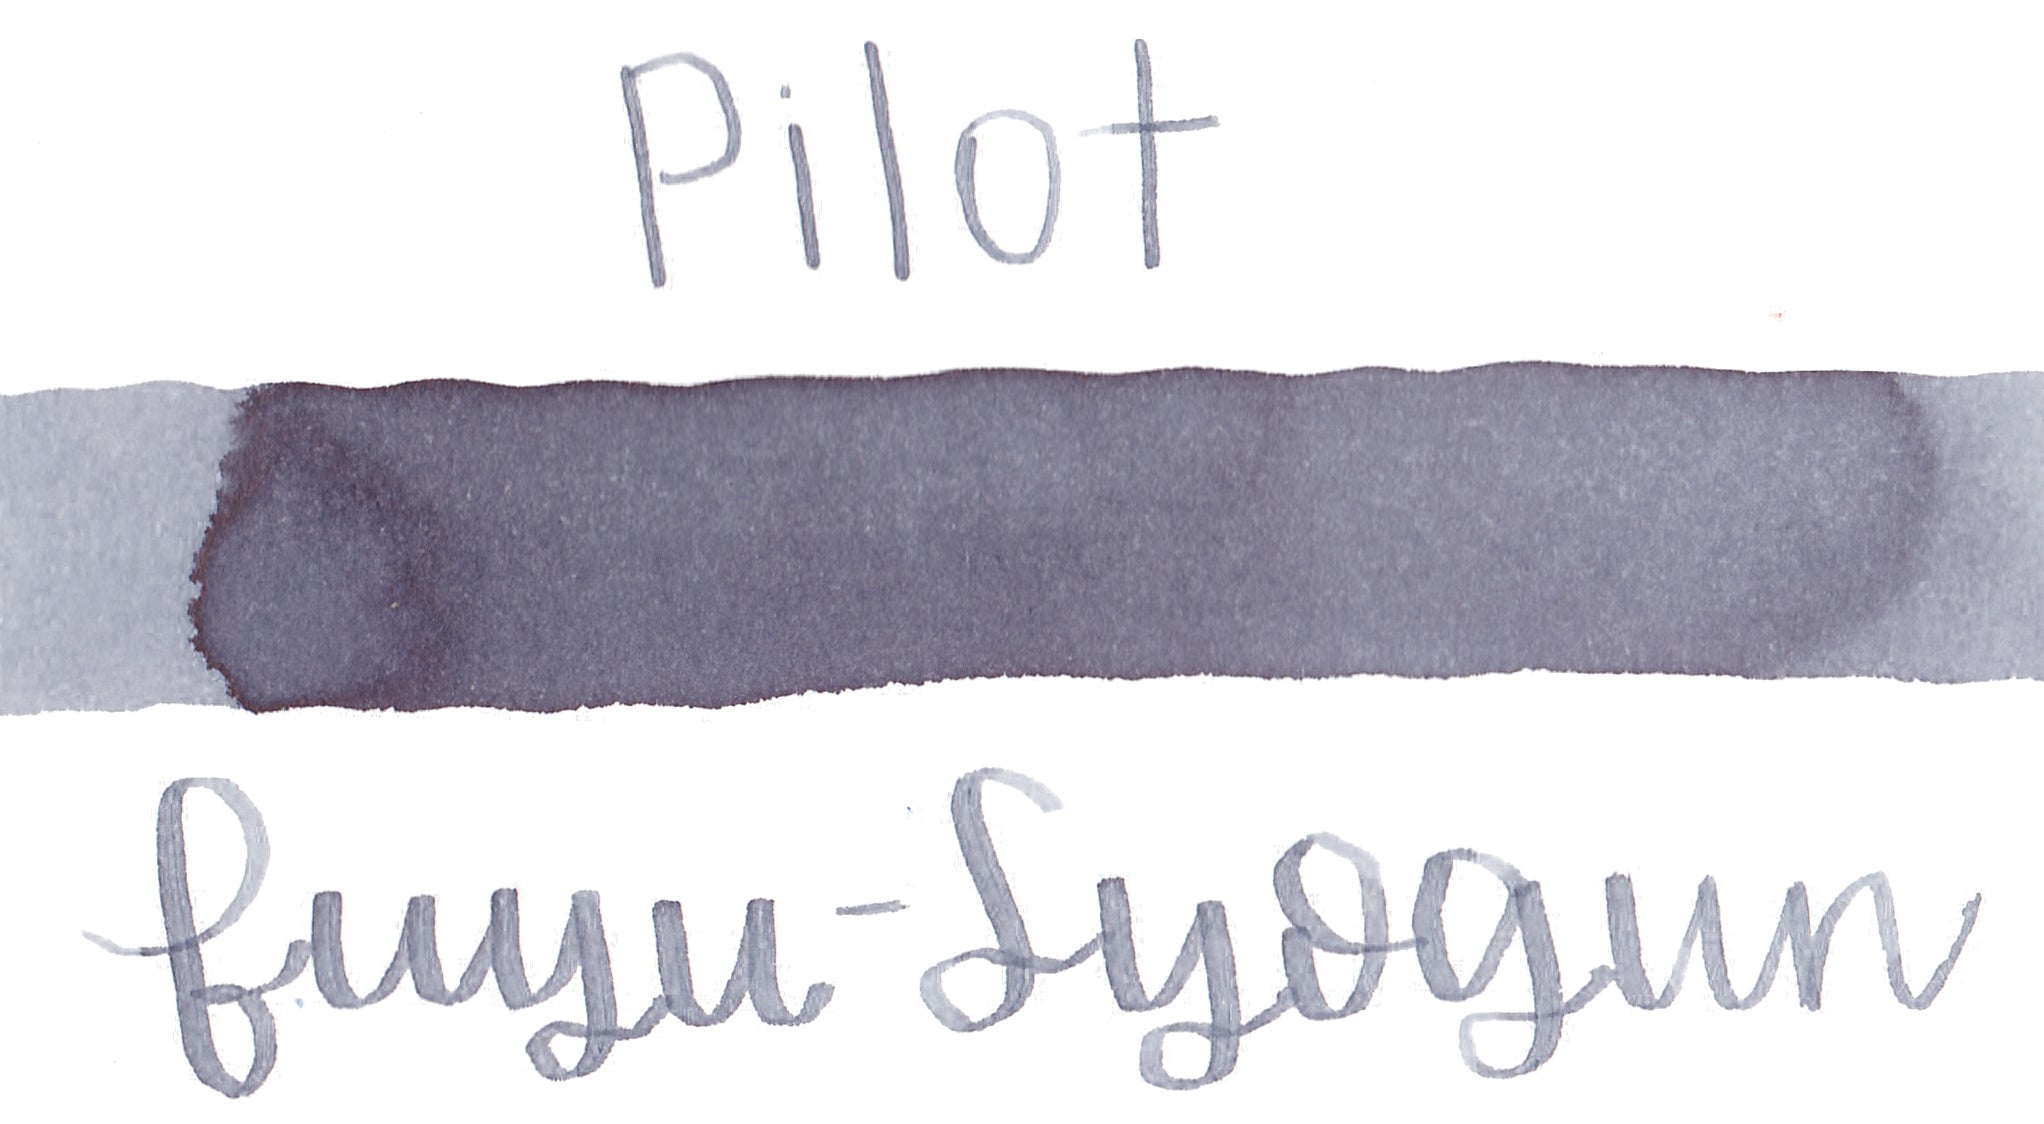 Pilot
fuyu-Syogun